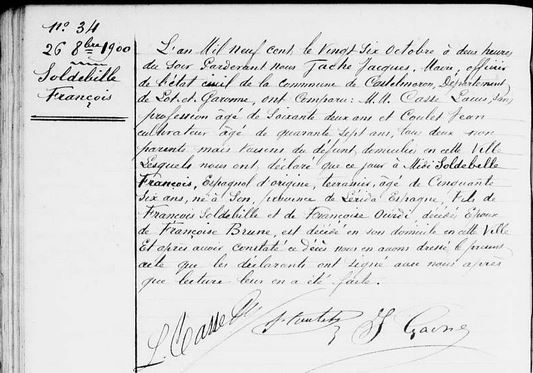 n° 34
26 8bre 1900
Soldebille
François
L'an Mil neuf cent, le Vingt Six Octobre à deux heures
du Soir Pardevant nous Jacques, Maire, officier
de l'état civil de la commune de Castelmoron, Département
de Lot-et-Garonne, ont Comparu: M.M. Casse Louis, San
profession âgé de Soixante deux ans et Coulet Jean
cultivateur âgé de quarante Sept ans, tous deux non
parents mais voisins du défunt, domiciliés en cette Ville
Lesquels nous ont déclaré que ce jour à Midi Soldebille
François, Espagnol d'origine, terrassier, âgé de Cinquante
Six ans, né à province de Lérida Espagne, fils de
François Soldebille et de Françoise décédés Epoux
de Françoise Brune, est décédé en son domicile en cette Ville
Et après avoir constaté ce Décès nous en avons dressé le présent
acte que les déclarants ont signé avec nous après
que lecture leur en a été faite.
L. Casse